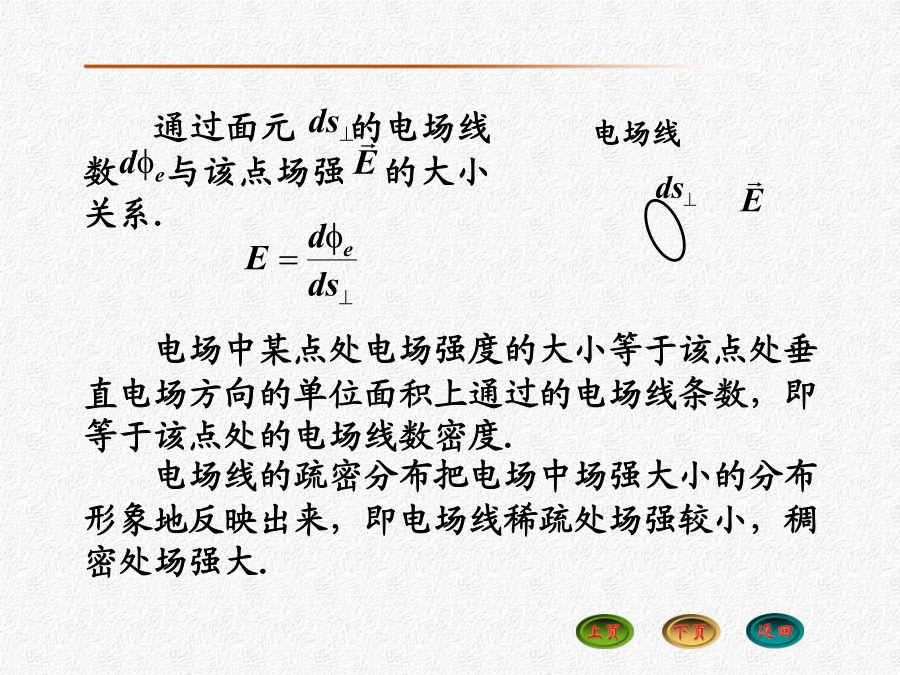 通过面元 ds⊥的电场线
数dϕe与该点场强 E⃗ 的大小
关系.
E = dϕe / ds⊥
电场线
ds⊥ E⃗
电场中某点处电场强度的大小等于该点处垂
直电场方向的单位面积上通过的电场线条数，即
等于该点处的电场线数密度.
电场线的疏密分布把电场中场强大小的分布
形象地反映出来，即电场线稀疏处场强较小，稠
密处场强大.
上页 下页 返回